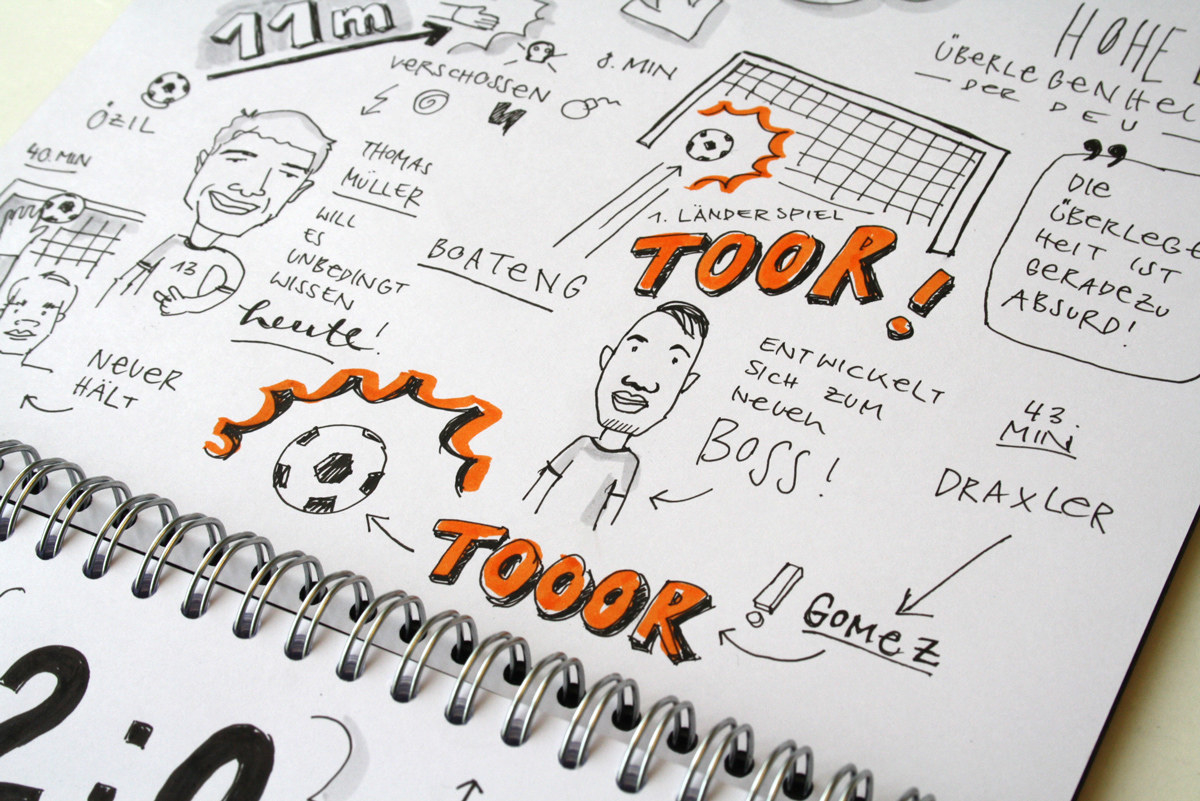 11m
VERSCHOSSEN
8. MIN
ÖZIL
40. MIN
THOMAS
MÜLLER
WILL
ES
UNBEDINGT
WISSEN
heute!
13
NEUER
HÄLT
BOATENG
1. LÄNDERSPIEL
TOOR!
ENTWICKELT
SICH ZUM
NEUEN
BOSS!
HOHE
DER DEU
"
DIE
HEIT IST
GERADEZU
ABSURD!
43.
MIN
DRAXLER
GOMEZ
TOOOR!
2:0